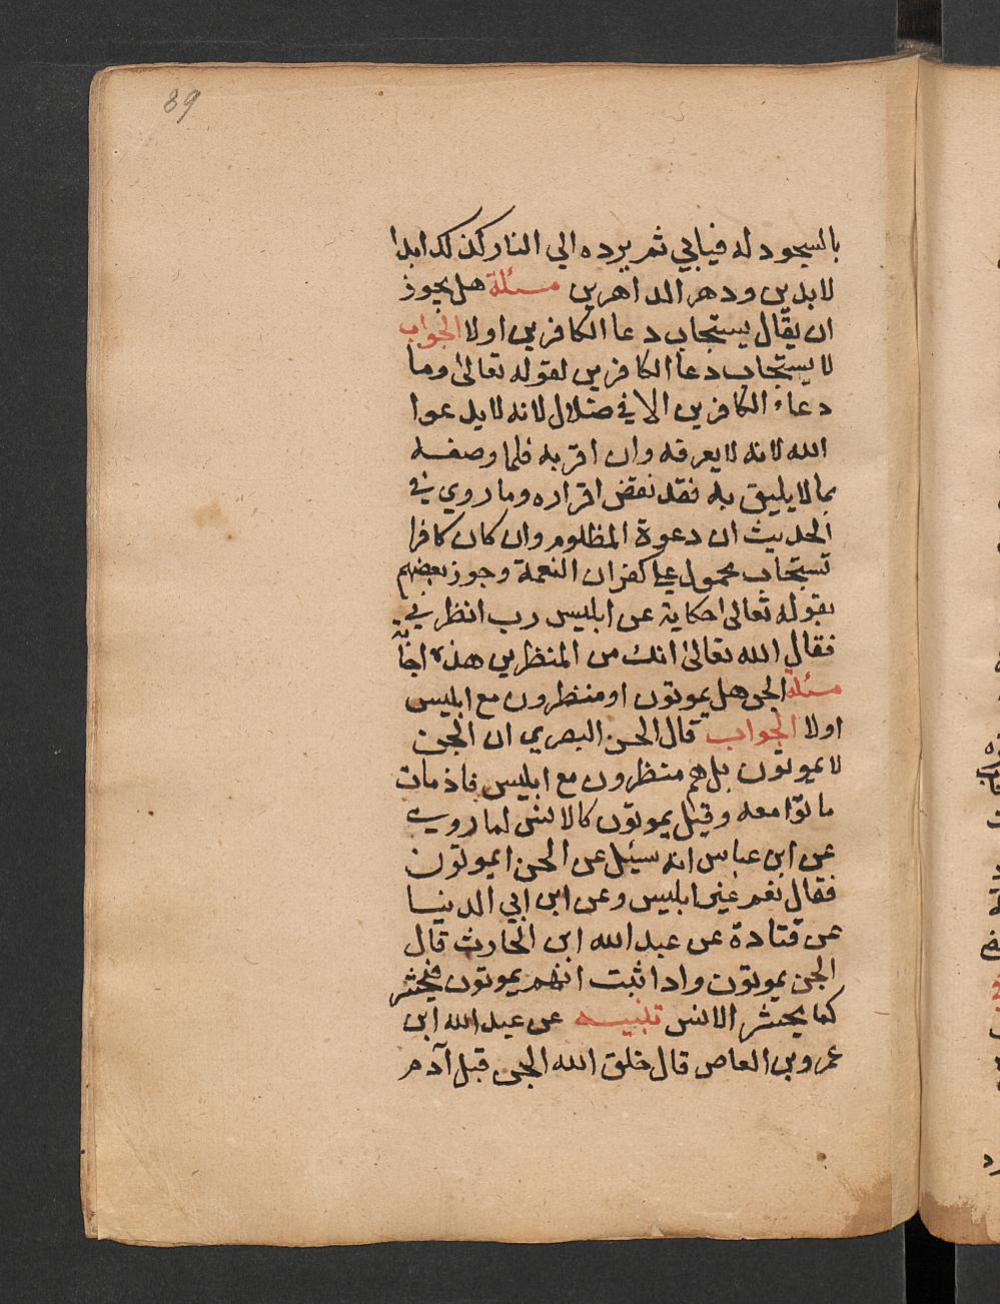 89
بالسجود له فيابي ثم يرده الي النار كذلك ابدا
لابدين ودهر الداهرين مسئلة هل يجوز
ان يقال يستجاب دعا الكافرين اولا الجواب
لا يستجاب دعا الكافرين لقوله تعالى وما
دعاء الكافرين الا في ضلال لانه لا يدعوا
الله لانه لا يعرفه وان اقر به فلما وصفه
بما لا يليق به فقد نقض اقراره وما روي في
الحديث ان دعوة المظلوم وان كان كافرا
تستجاب محمول علي كفران النعمة وجوز بعضهم
بقوله تعالى حكاية عن ابليس رب انظرني
فقال الله تعالى انك من المنظرين هذه اجابة
مسئلة الجن هل يموتون او منظرون مع ابليس
اولا الجواب قال الحسن البصري ان الجن
لا يموتون بل هم منتظرون مع ابليس فاذ مات
ماتوا معه وقيل يموتون كالانس لما روي
عن ابن عباس انه سيئل عن الجن ايموتون
فقال نعم غير ابليس وعن ابن ابي الدنيا
عن قتادة عن عبد الله ابن الحارث قال
الجن يموتون واذا ثبت انهم يموتون فيحشر
كما يحشر الانس تنبيه عن عبد الله ابن
عمرو بن العاص قال خلق الله الجن قبل آدم